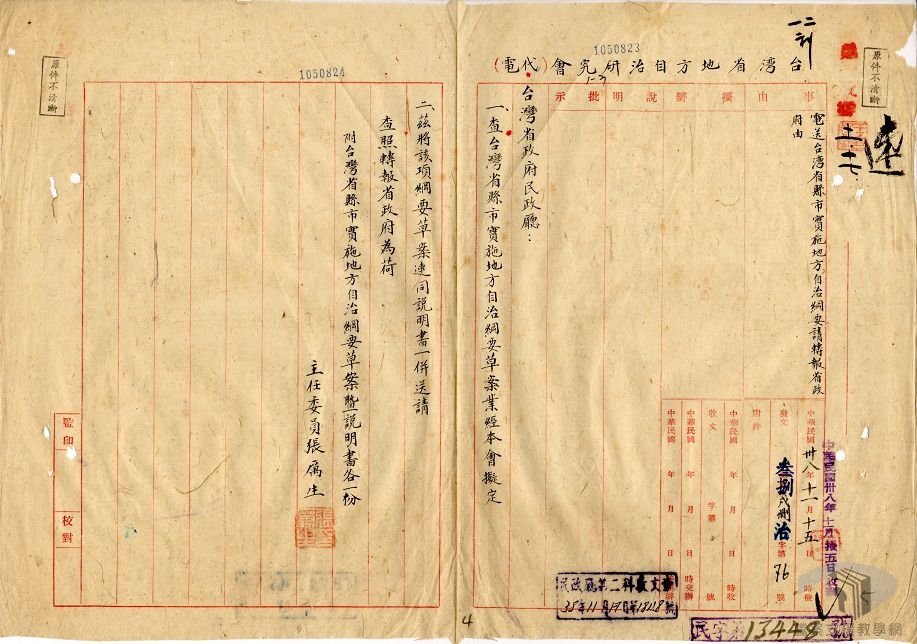 1050823
台灣省地方自治研究會(代電)
事由
擬辦
說明
批示
電送台湾省縣市實施地方自治綱要請轉報省政
府由
中華民國卅八年十一月十五日
發文
字第76號
附件
中華民國 年 月 日 時收
收文 字第 號
中華民國 年 月 日 時交辦
中華民國 年 月 日
中華民國卅八年十一月拾五日收
台灣省政府民政廳：
一、查台灣省縣市實施地方自治綱要草案業經本會擬定
1050824
二、茲將該項綱要草案連同說明書一併送請
查照轉報省政府為荷
附台灣省縣市實施地方自治綱要草案暨說明書各一份
主任委員張厲生
監印
校對
原件不清晰
原件不清晰
速
民政廳第二科收文
38年11月17日
民字第13448號
4
教學網